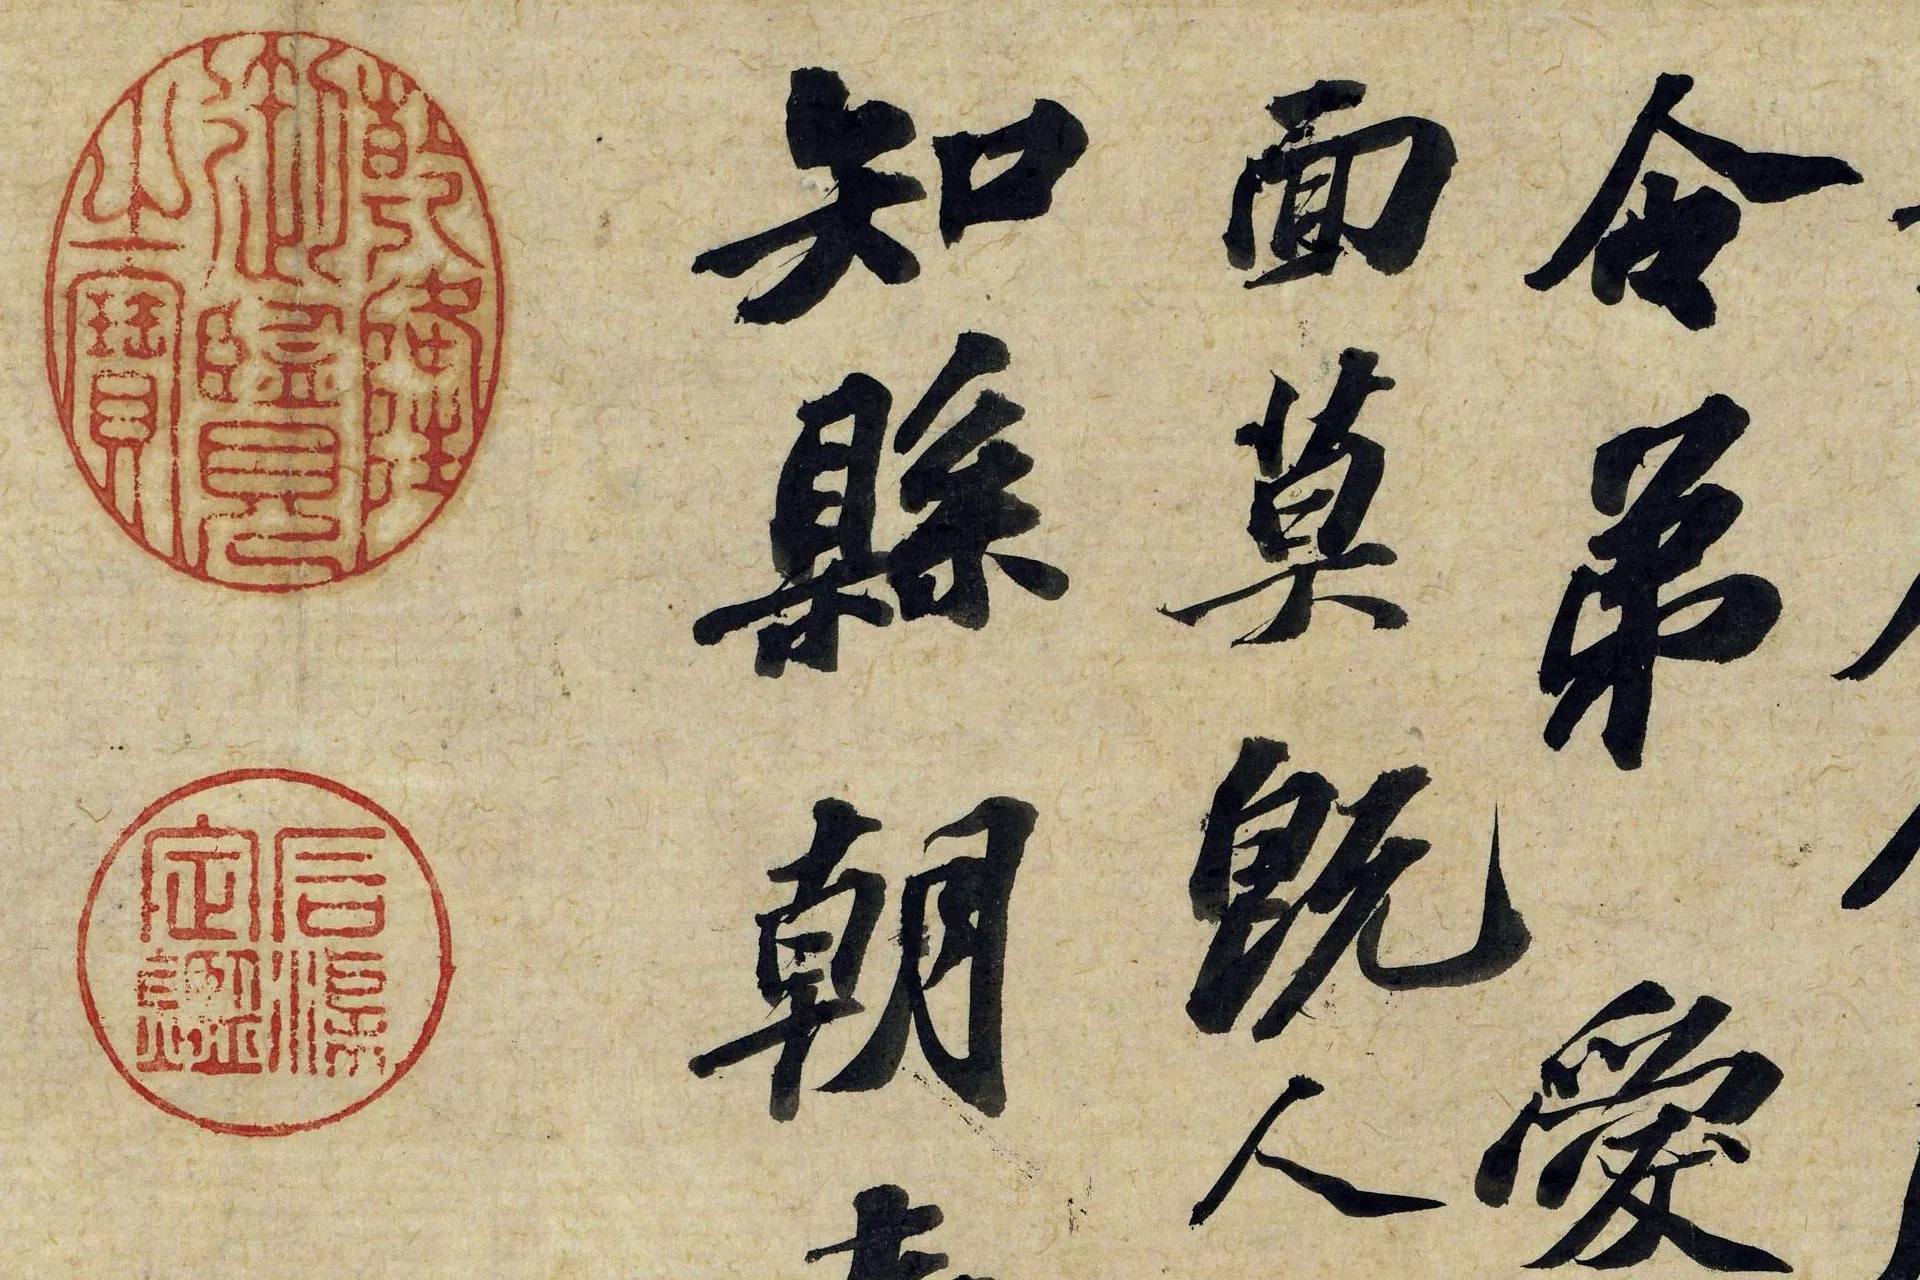 舍弟愛
面莫既人
知縣朝
乾隆御覽之寶
石渠定鑑